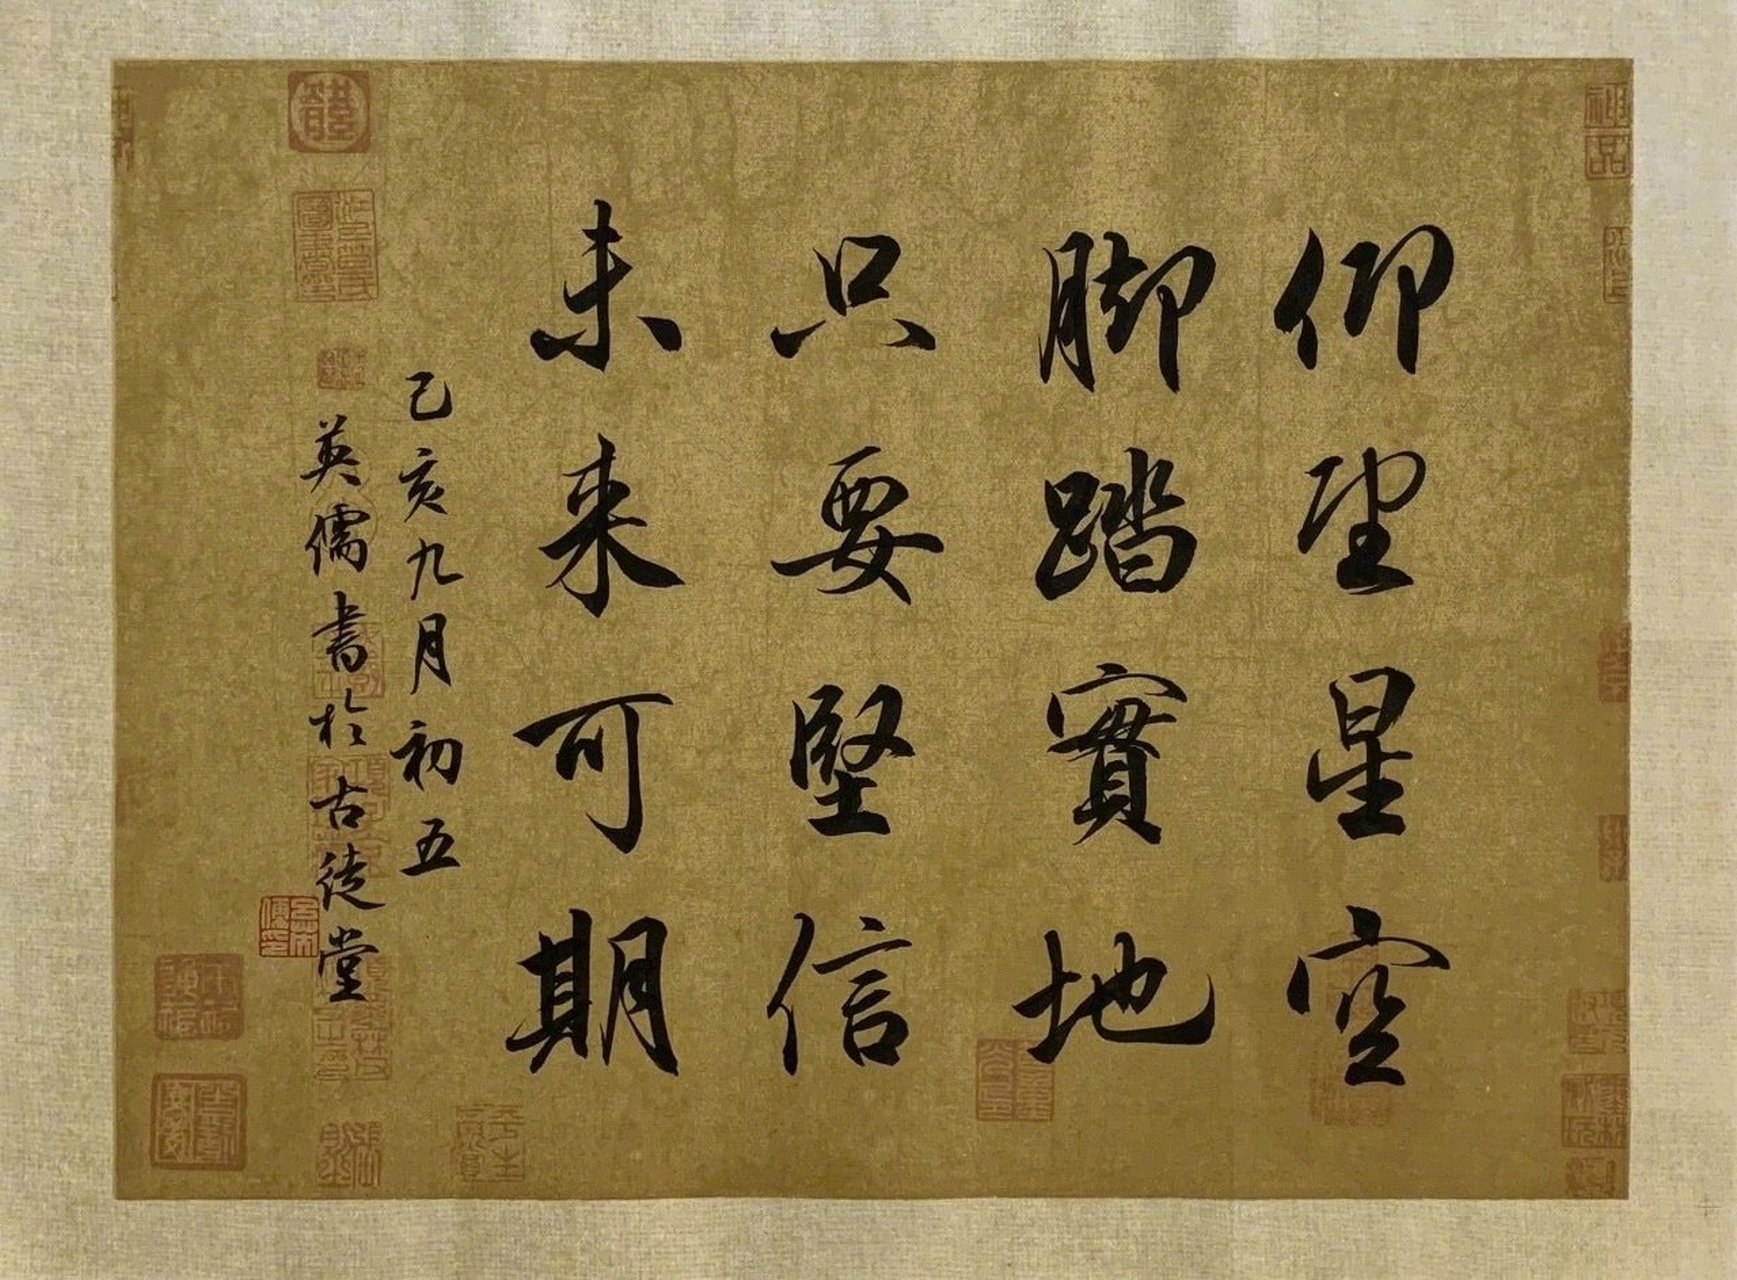 仰望星空
脚踏實地
只要堅信
未来可期
己亥九月初五
英儒書於古徒堂